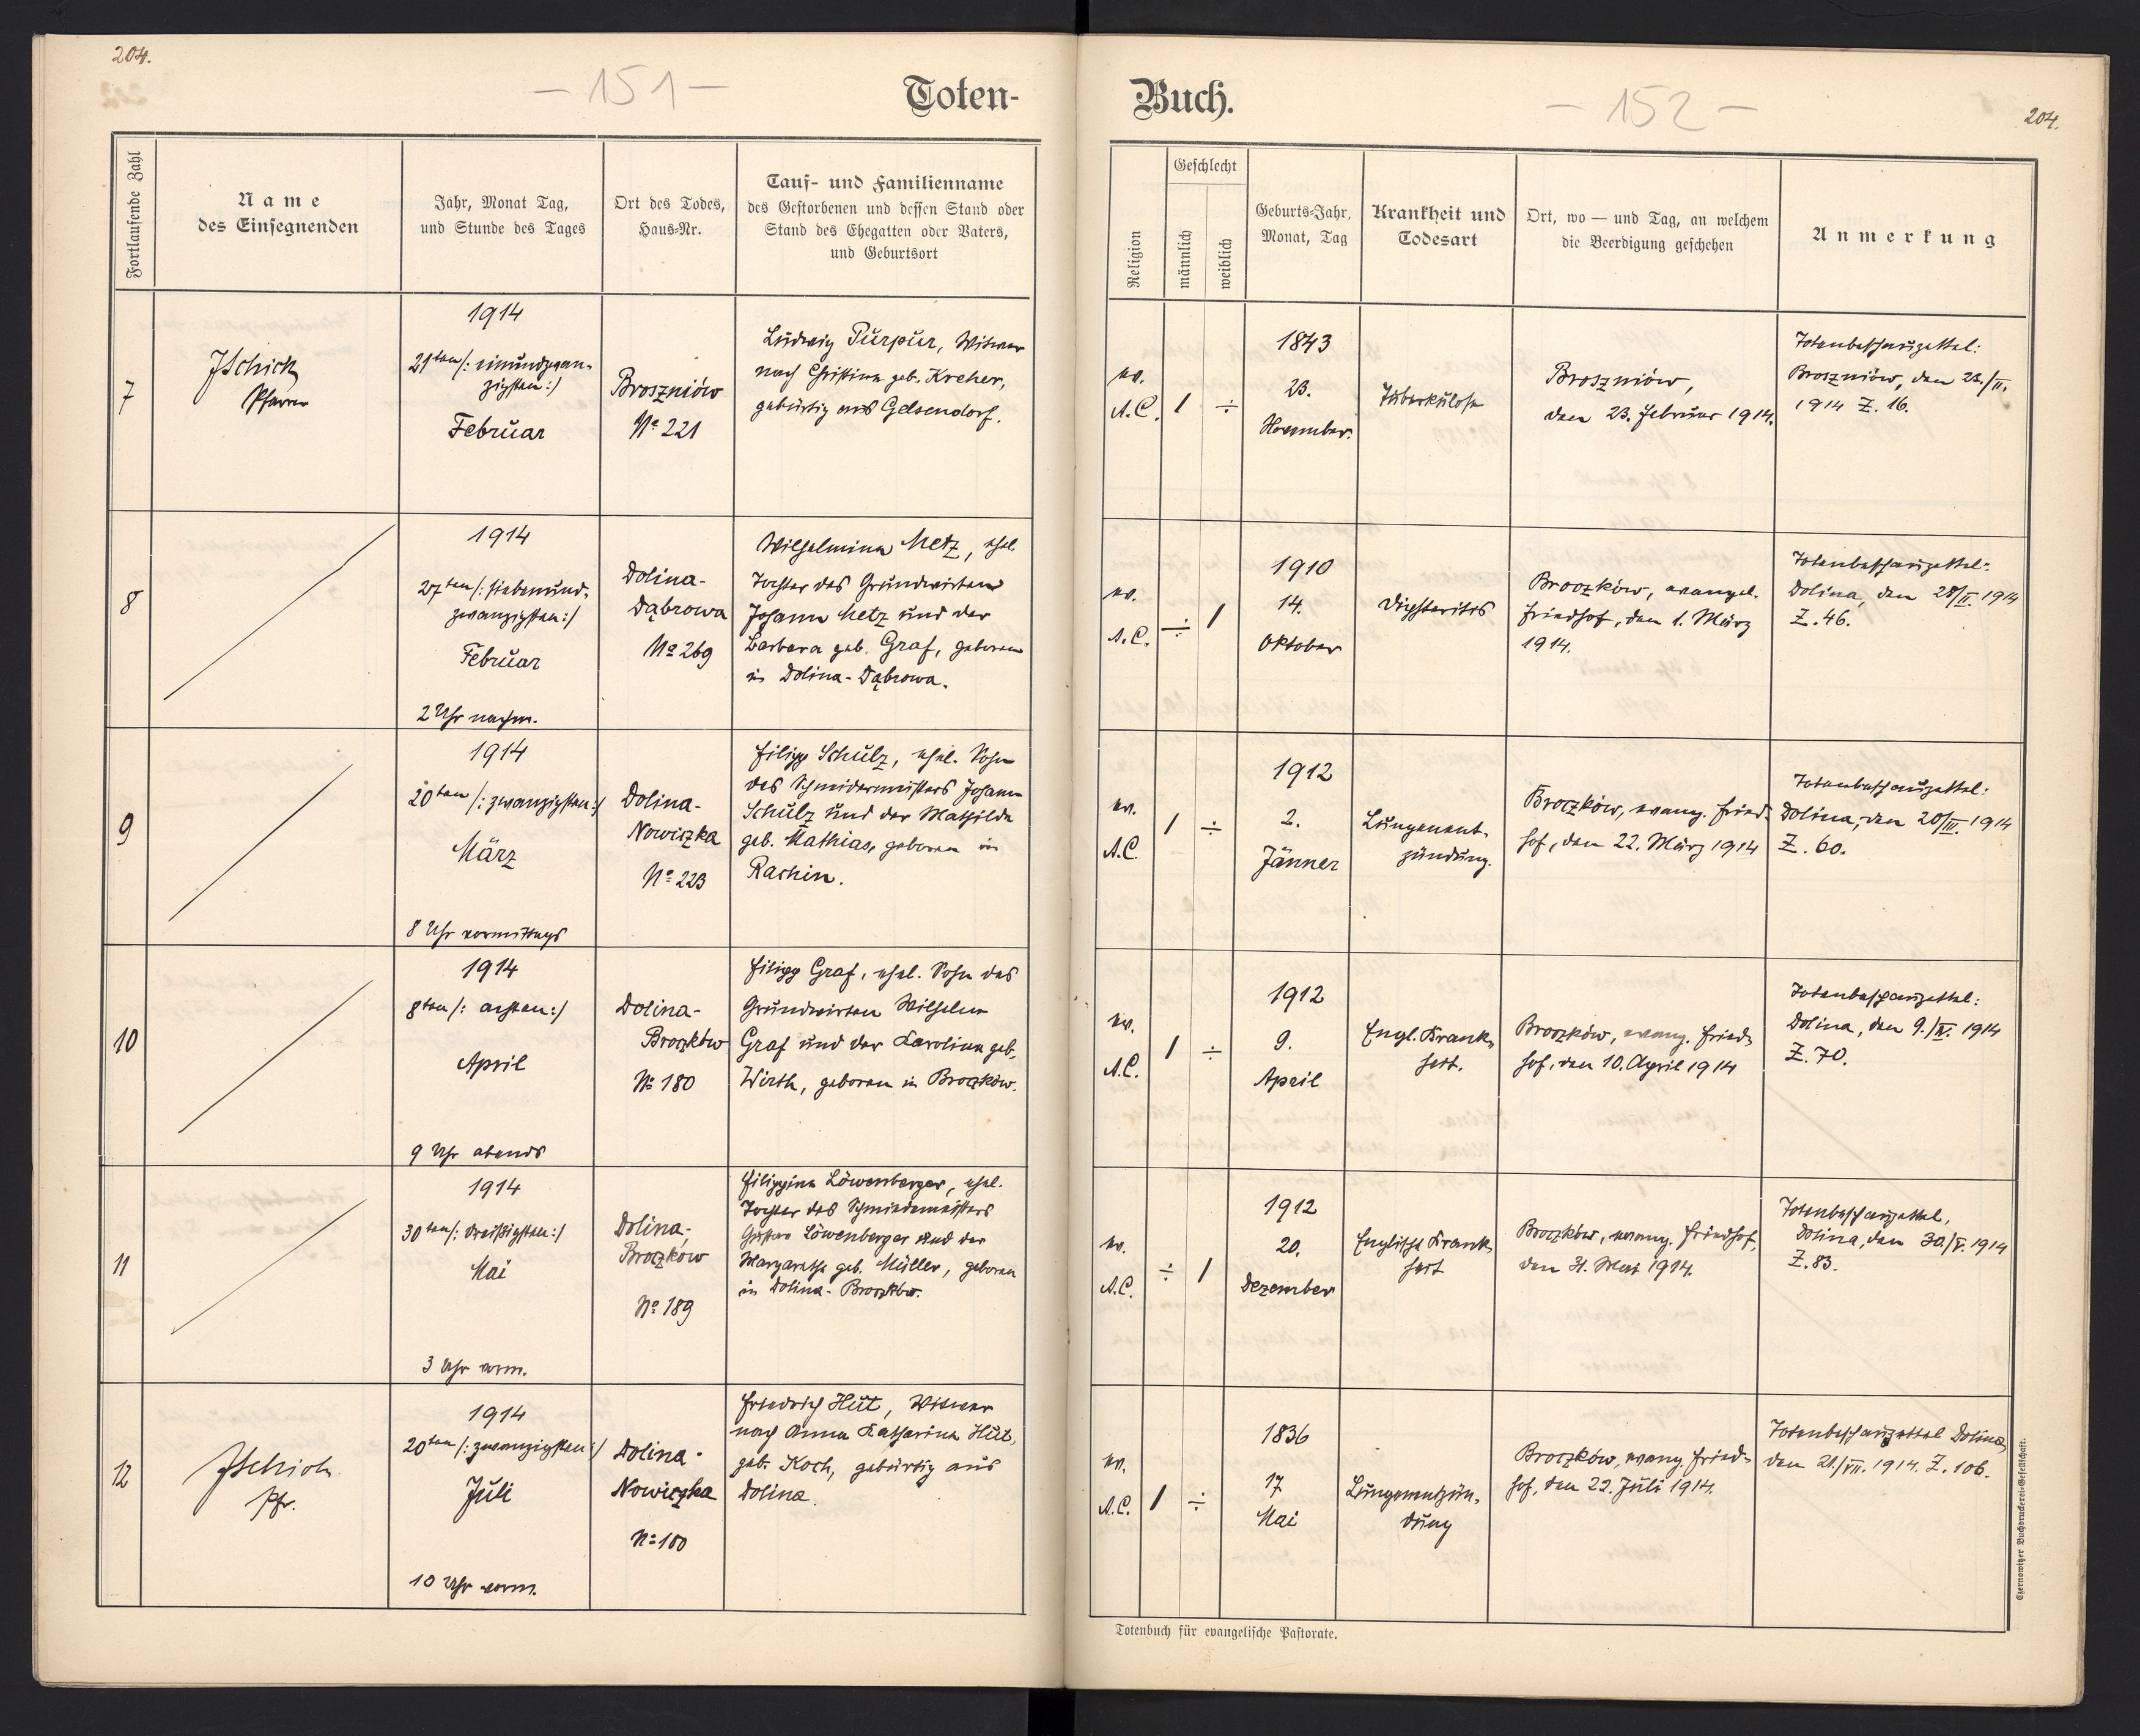 204.
- 151 -
Toten-
Fortlaufende Zahl
Name
des Einsegnenden
Jahr, Monat Tag,
und Stunde des Tages
Ort des Todes,
Haus-Nr.
Tauf- und Familienname
des Gestorbenen und dessen Stand oder
Stand des Ehegatten oder Vaters,
und Geburtsort
7
Pfarrer
1914
21ten /: einundzwan-
zigsten :/
Februar
Broszniów
No 221
Ludwig Purpur, Witwer
nach Christina geb. Kreher,
gebürtig aus Gelsendorf.
8
1914
27ten /: siebenund-
zwanzigsten :/
Februar
2 Uhr nachm.
Dolina-
Dąbrowa
No 269
Wilhelmina Metz, ehel.
Tochter des Grundwirten
Johann Metz und der
Barbara geb. Graf, geboren
in Dolina-Dąbrowa.
9
1914
20ten /: zwanzigsten :/
März
8 Uhr vormittags
Dolina-
Nowiczka
No 223
Filipp Schulz, ehel. Sohn
des Schneidermeisters Johann
Schulz und der Mathilde
geb. Mathias, geboren in
Rachin.
10
1914
8ten /: achten :/
April
9 Uhr abends
Dolina-
Broczków
No 180
Filipp Graf, ehel. Sohn des
Grundwirten Wilhelm
Graf und der Karolina geb.
Wirth, geboren in Broczków.
11
1914
30ten /: dreißigsten :/
Mai
3 Uhr vorm.
Dolina-
Broczków
No 189
Filippina Löwenberger, ehel.
Tochter des Schmiedemeisters
Gustav Löwenberger und der
Margarethe geb. Müller, geboren
in Dolina-Broczków.
12
Pfr.
1914
20ten /: zwanzigsten :/
Juli
10 Uhr vorm.
Dolina-
Nowiczka
No 180
Friedrich Hut, Witwer
nach Anna Katharina Hut,
geb. Koch, gebürtig aus
Dolina.
Buch.
- 152 -
204.
Religion
Geschlecht
männlich
weiblich
Geburts-Jahr,
Monat, Tag
Krankheit und
Todesart
Ort, wo — und Tag, an welchem
die Beerdigung geschehen
Anmerkung
ev.
A.C.
1
÷
1843
23.
November.
Tuberkulose
Broszniów,
den 23. Februar 1914.
Totenbeschauzettel:
Broszniów, den 23./II.
1914 Z. 16.
ev.
A.C.
÷
1
1910
14.
Oktober
Diphteritis
Broczków, evangel.
Friedhof, den 1. März
1914.
Totenbeschauzettel:
Dolina, den 28/II. 1914
Z. 46.
ev.
A.C.
1
÷
1912
2.
Jänner
Lungenent-
zündung.
Broczków, evang. Fried-
hof, den 22. März 1914
Totenbeschauzettel:
Dolina, den 20/III. 1914
Z. 60.
ev.
A.C.
1
÷
1912
9.
April
Engl. Krank-
heit.
Broczków, evang. Fried-
hof, den 10. April 1914
Totenbeschauzettel:
Dolina, den 9./IV. 1914
Z. 70.
ev.
A.C.
÷
1
1912
20.
Dezember
Englische Krank-
heit
Broczków, evang. Friedhof,
den 31. Mai 1914.
Totenbeschauzettel,
Dolina, den 30./V. 1914
Z. 83.
ev.
A.C.
1
÷
1836
17
Mai
Lungenentzün-
dung
Broczków, evang. Fried-
hof, den 22. Juli 1914.
Totenbeschauzettel Dolina,
den 21./VII. 1914. Z. 106.
Totenbuch für evangelische Pastorate.
Czernowitzer Buchdruckerei-Gesellschaft.